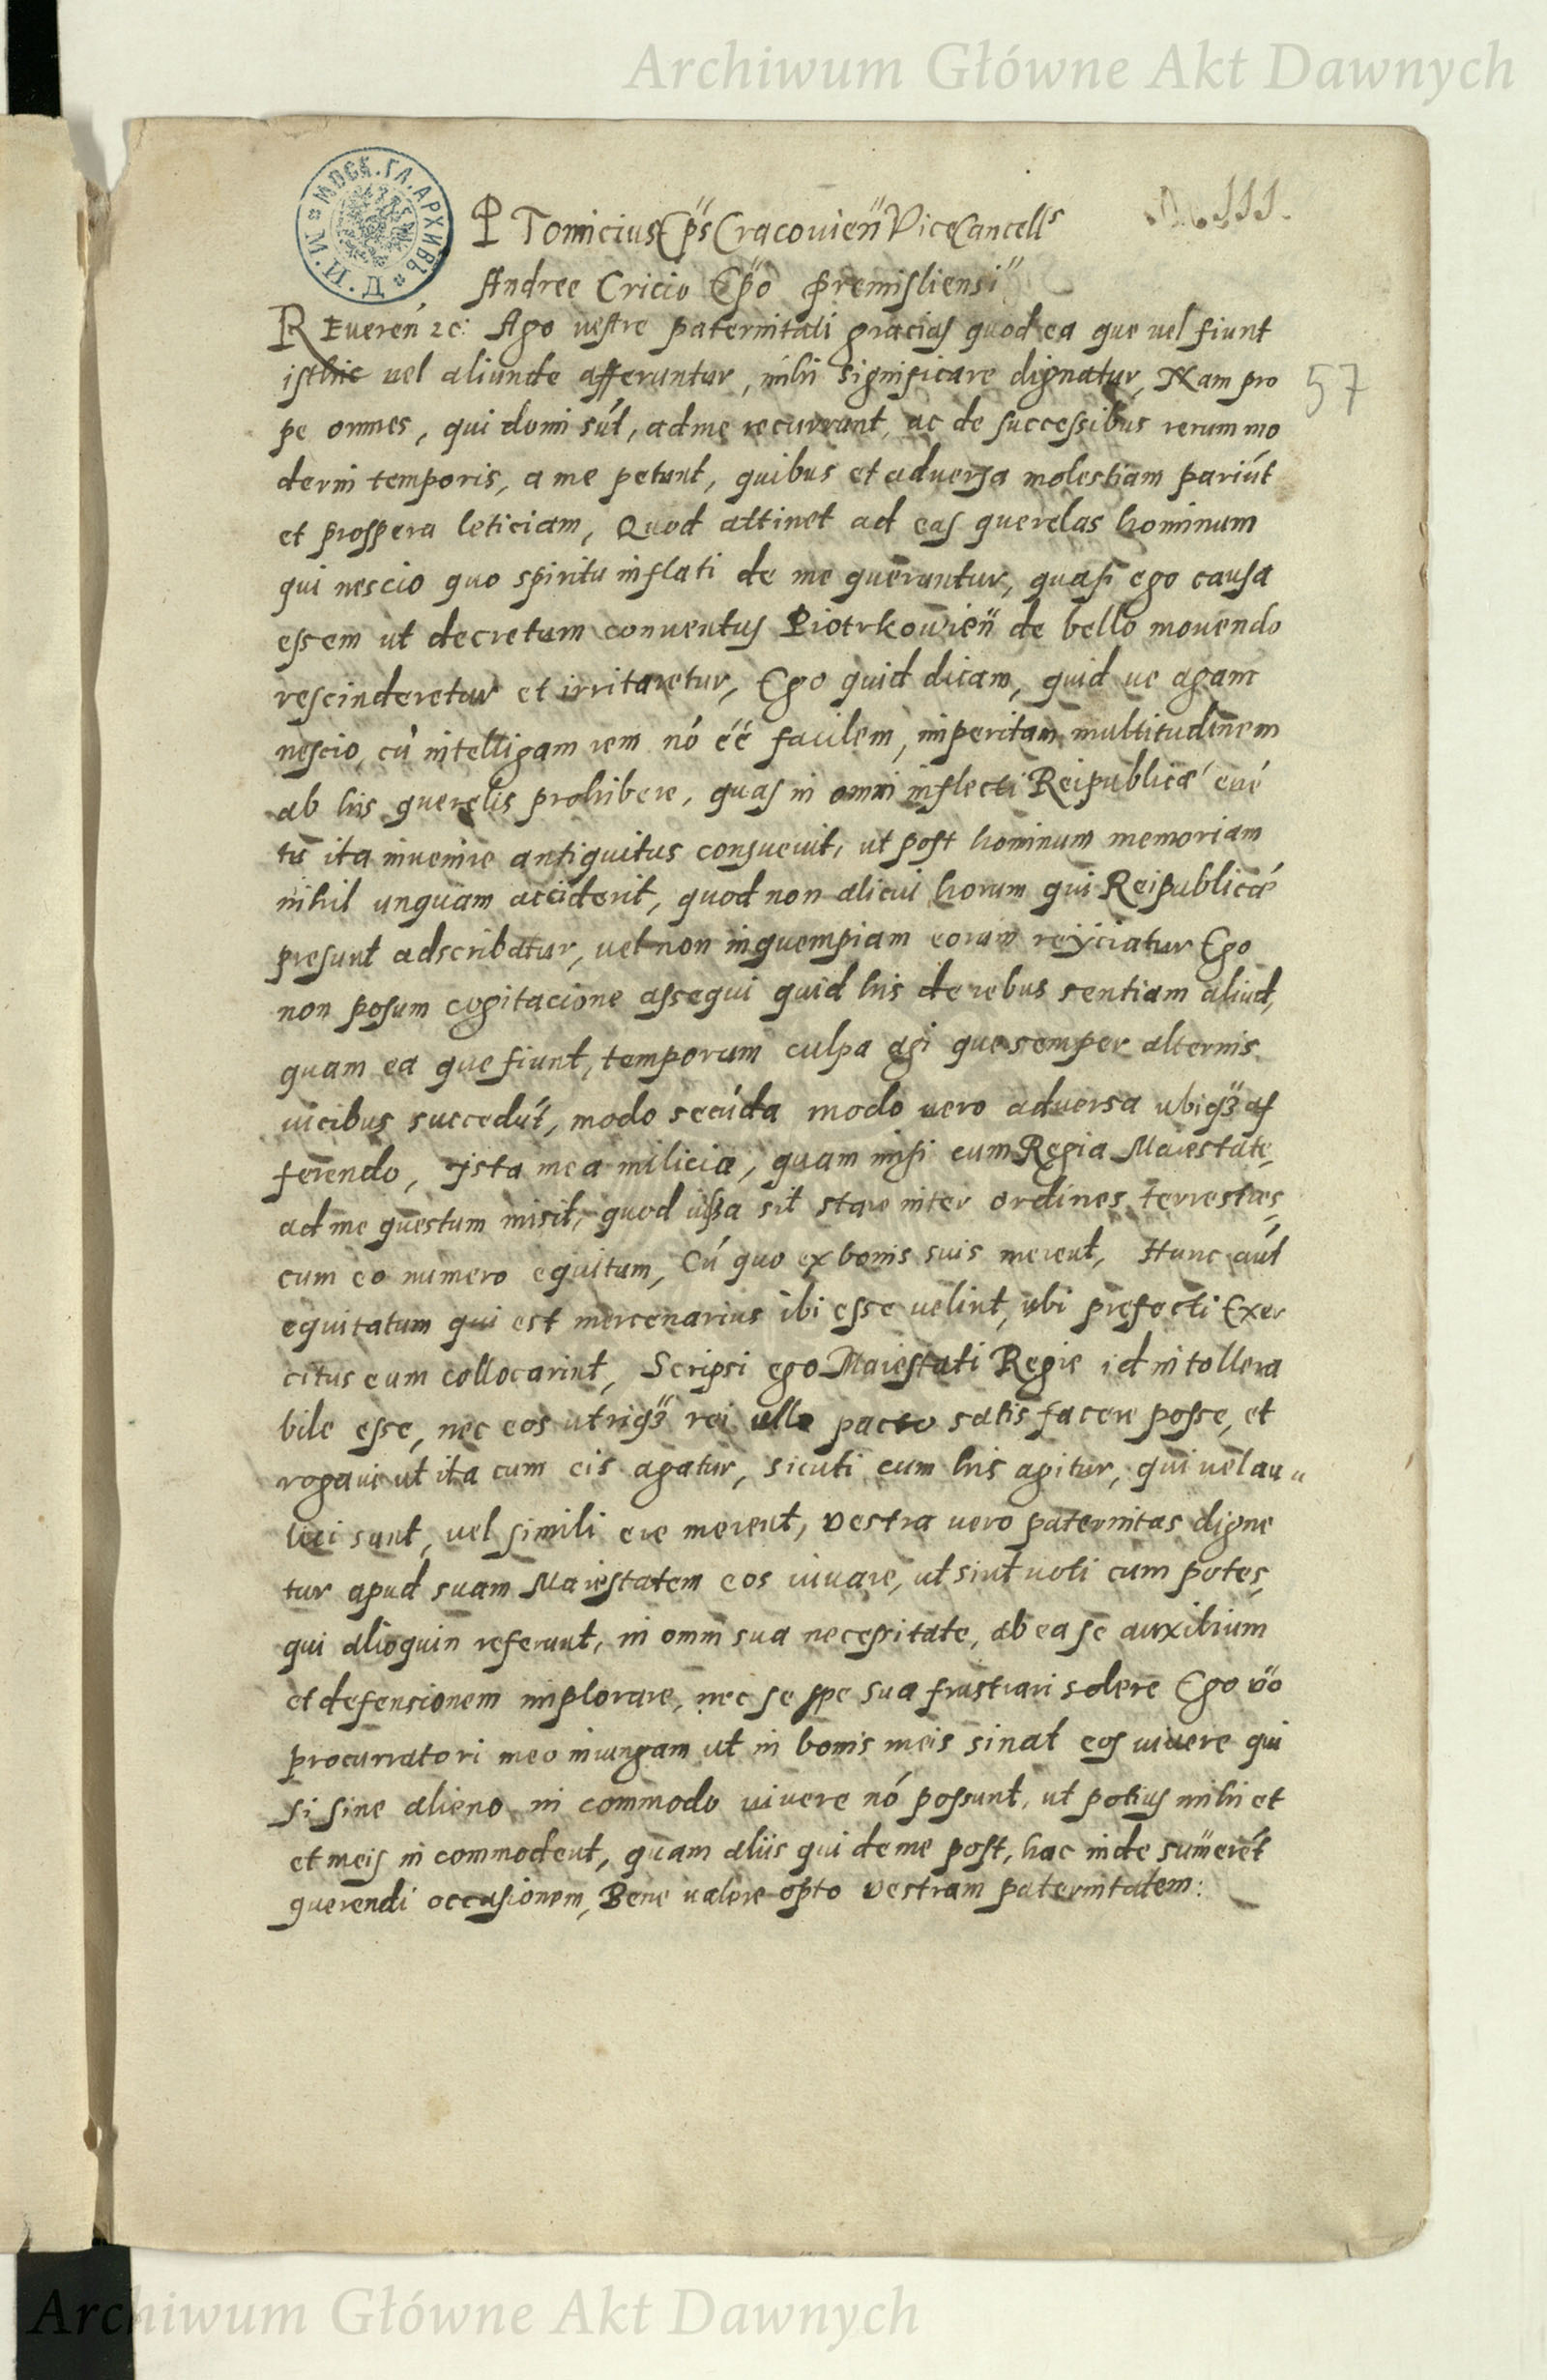 Archiwum Główne Akt Dawnych
МОСК. ГЛ. АРХИВЪ
М. И. Д.
III.
P Tomicius Ep̃s Cracouień ViceCancells
Andree Cricio Ep̃o premisliensi
REuereń 2c: Ago vestre paternitati gracias quod ea que vel fiunt
isthic vel aliunde afferuntur, mihi significare dignatur, Nam pro
57
pe omnes, qui domi sút, ad me recurrunt, ac de successibus rerum mo
derni temporis, a me petunt, quibus et aduersa molestiam pariút
et prospera leticiam, Quod attinet ad eas querelas hominum
qui nescio quo spiritu inflati de me querantur, quasi ego causa
essem ut decretum conuentus Piotrkowień de bello mouendo
rescinderetur et irritaretur, Ego quid dicam, quid ue agam
nescio, cú intelligam rem nó éé facilem, imperitam multitudinem
ab his querelis prohibere, quas in omni inflecti Reipublicæ eué
tu ita inuenire antiquitus consueuit, ut post hominum memoriam
nihil unquam acciderit, quod non alicui horum qui Reipublicæ
presunt adscribatur, vel non inquempiam eorum reÿciatur Ego
non posum cogitacione assequi quid his de rebus sentiam aliud,
quam ea que fiunt, temporum culpa agi que semper alternis
uicibus succedút, modo secúda modo uero aduersa ubiqȝ af
ferendo, Ista mea milicia, quam misi cum Regia Maiestate,
ad me questum misit, quod iussa sit stare inter ordines terrestres,
cum eo numero equitum, Cú quo ex bonis suis merent, Hunc aút
equitatum qui est mercenarius ibi esse uelint, ubi prefecti Exer
citus eum collocarint, Scripsi ego Maiestati Regie id intollera
bile esse, nec eos utriqȝ rei ullo pacto satisfacere posse, et
rogaui ut ita cum eis agatur, sicuti cum his agitur, qui uel au
lici sunt, uel simili ere merent, Vestra uero paternitas digne
tur apud suam Maiestatem eos iuuare, ut sint uoti cum potes,
qui alioquin referunt, in omni sua necessitate, ab ea se auxilium
et defensionem implorare, nec se spe sua frustrari solere Ego v̈o
procurratori meo iniungam ut in bonis meis sinat eos uiuere qui
si sine alieno in commodo uiuere nó possunt, ut potius mihi et
et meis in commodent, quam aliis qui de me post, hac inde sum̃erét
querendi occasionem, Bene ualere opto Vestram paternitatem:
Archiwum Główne Akt Dawnych